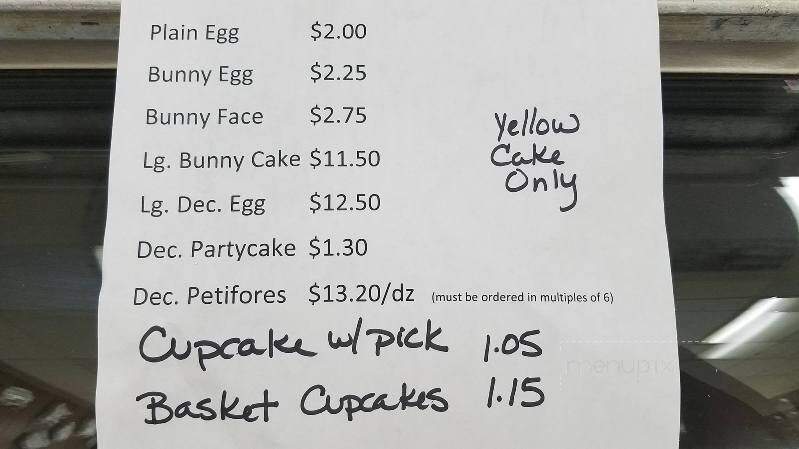 Plain Egg $2.00
Bunny Egg $2.25
Bunny Face $2.75
Lg. Bunny Cake $11.50
Lg. Dec. Egg $12.50
Dec. Partycake $1.30
Dec. Petifores $13.20/dz (must be ordered in multiples of 6)
Yellow
Cake
Only
Cupcake w/ pick 1.05
Basket Cupcakes 1.15
menupix